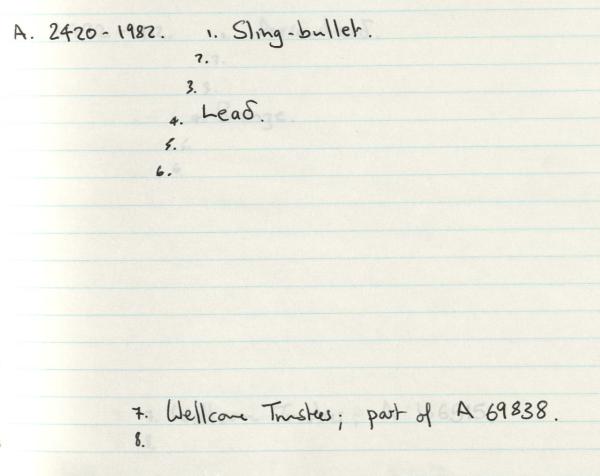 A. 2420-1982. 1. Sling-bullet.
2.
3.
4. Lead.
5.
6.
7. Wellcome Trustees; part of A 69838.
8.